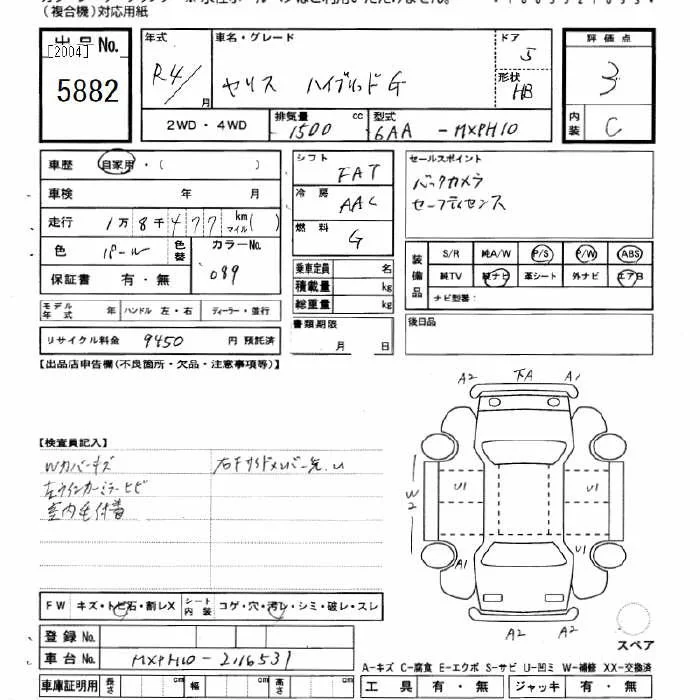 (複合機)対応用紙
出品No.
[2004]
5882
年式
R4/
月
車名・グレード
ヤリス ハイブリッドG
ドア
5
形状
HB
評価点
3
内装
C
2WD・4WD
排気量
1500
cc
型式
6AA -MXPH10
車歴
自家用・( )
車検 年 月
走行
1万8千477
km
マイル
( )
色
パール
色替
カラーNo.
089
保証書 有・無
シフト
FAT
冷房
AAC
燃料
G
乗車定員 名
積載量 kg
総重量 kg
書類期限
月 日
セールスポイント
バックカメラ
セーフティセンス
装備品
S/R 純A/W P/S P/W ABS
純TV 純ナビ 革シート 外ナビ エアB
ナビ型番:
後日品
モデル年式 年 ハンドル 左・右 ディーラー・並行
リサイクル料金 9450 円 預託済
【出品店申告欄(不良箇所・欠品・注意事項等)】
【検査員記入】
Wカバーキズ
左ウインカーミラーヒビ
室内毛付着
右Fサイドメンバー先U
A2 下A A1
W2
U1 U1
A1 U1
A2 A2
スペア
FW キズ・トビ石・割レX
シート内装 コゲ・穴・汚レ・シミ・破レ・スレ
登録No.
車台No. MXPH10-2116531
車庫証明用 長さ cm 幅 cm 高さ cm
A-キズ C-腐食 E-エクボ S-サビ U-凹ミ W-補修 XX-交換済
工具 有・無 ジャッキ 有・無